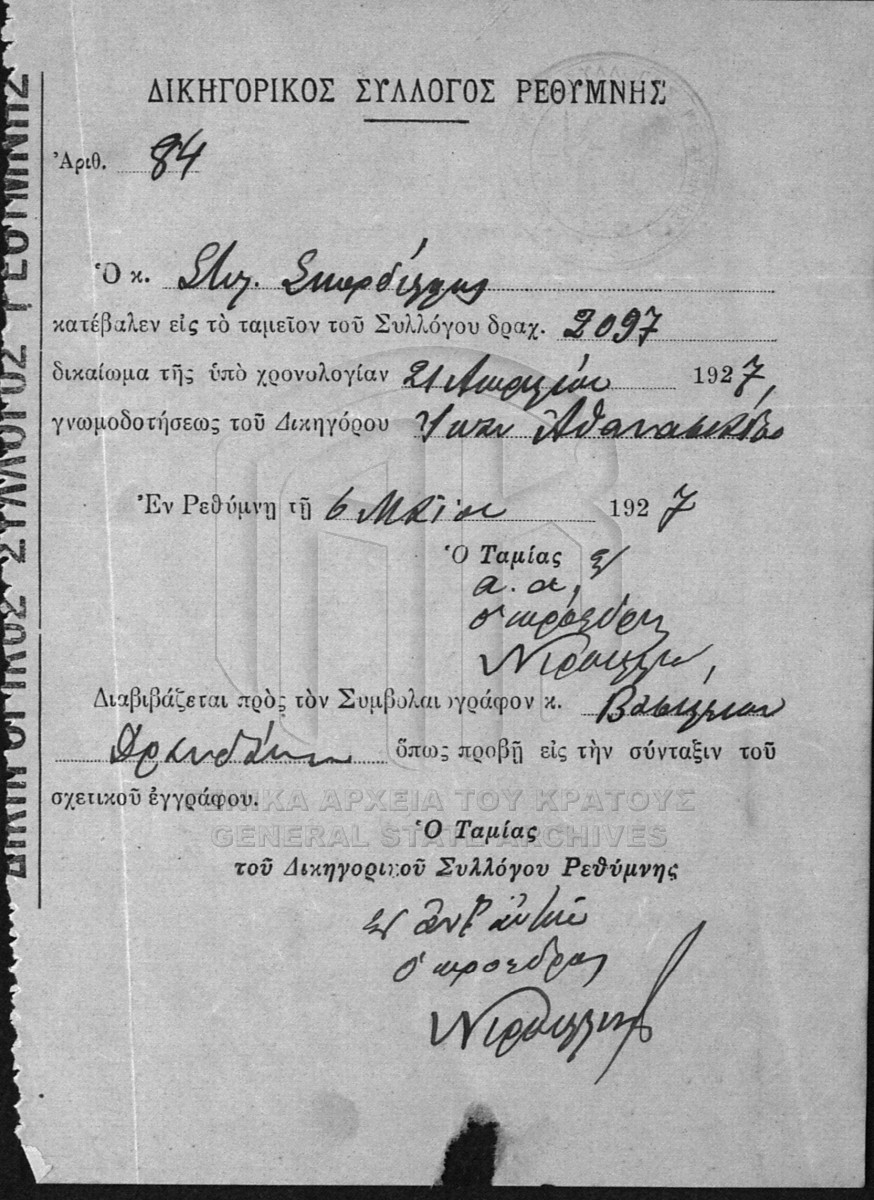 ΔΙΚΗΓΟΡΙΚΟΣ ΣΥΛΛΟΓΟΣ ΡΕΘΥΜΝΗΣ
Ἀριθ. 84
Ὁ κ. Στυλ. Σκορδίλης
κατέβαλεν εἰς τὸ ταμεῖον τοῦ Συλλόγου δραχ. 2097
δικαίωμα τῆς ὑπὸ χρονολογίαν 21 Απριλίου 1927,
γνωμοδοτήσεως τοῦ Δικηγόρου
Ἐν Ρεθύμνῃ τῇ 6 Μαΐου 1927
Ὁ Ταμίας
α. α,
ο πρόεδρος
Διαβιβάζεται πρὸς τὸν Συμβολαιογράφον κ. Βασίλειον
ὅπως προβῇ εἰς τὴν σύνταξιν τοῦ
σχετικοῦ ἐγγράφου.
ΓΕΝΙΚΑ ΑΡΧΕΙΑ ΤΟΥ ΚΡΑΤΟΥΣ
GENERAL STATE ARCHIVES
Ὁ Ταμίας
τοῦ Δικηγορικοῦ Συλλόγου Ρεθύμνης
ο πρόεδρος
ΔΙΚΗΓΟΡΙΚΟΣ ΣΥΛΛΟΓΟΣ ΡΕΘΥΜΝΗΣ